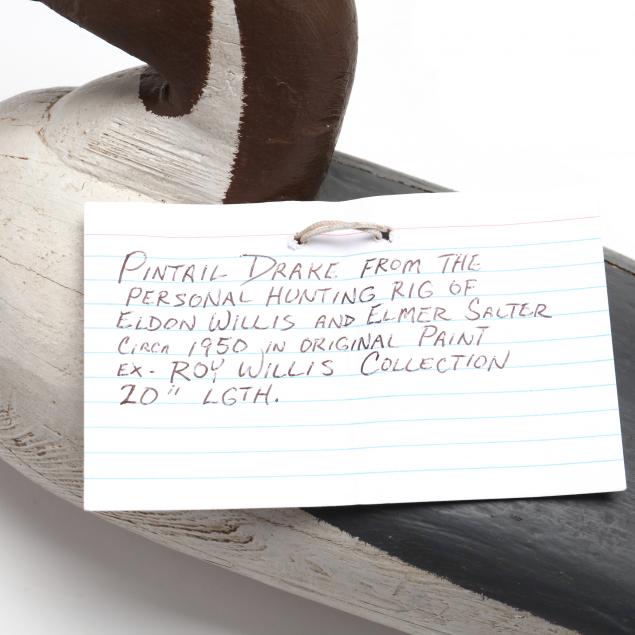 PINTAIL DRAKE FROM THE
PERSONAL HUNTING RIG OF
ELDON WILLIS AND ELMER SALTER
CIRCA 1950 IN ORIGINAL PAINT
EX- ROY WILLIS COLLECTION
20" LGTH.